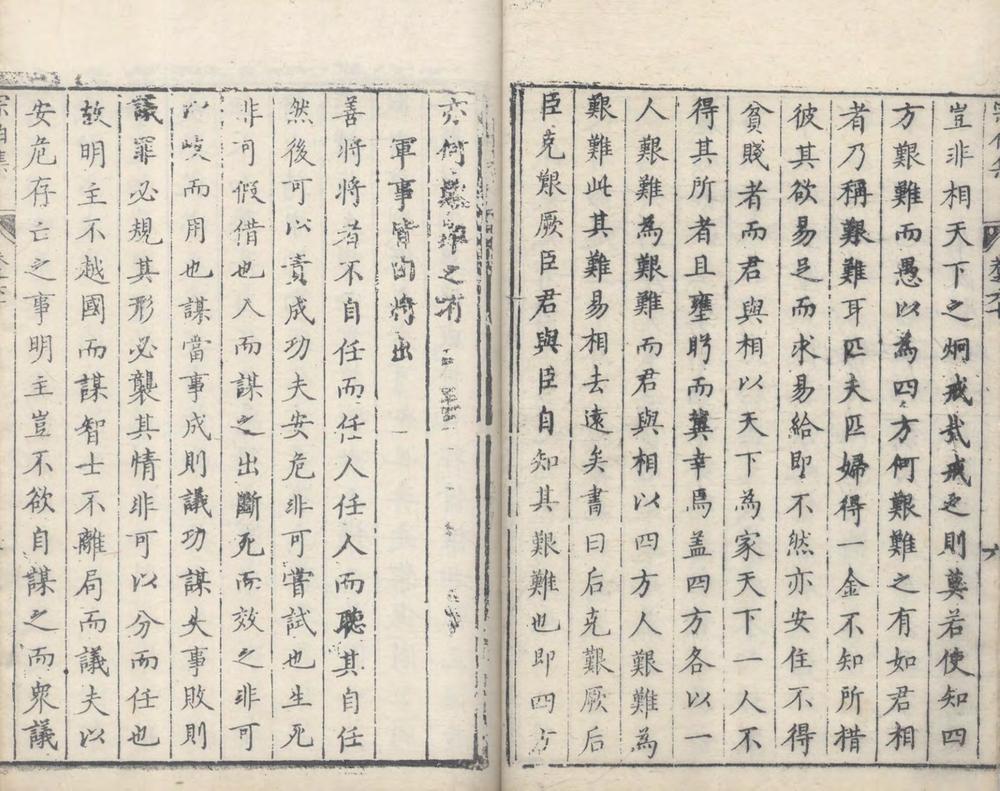 豈非相天下之炯戒哉戒之則莫若使知四
方艱難而愚以為四方何艱難之有如君相
者乃稱艱難耳匹夫匹婦得一金不知所措
彼其欲易足而求易給即不然亦安住不得
貧賤者而君與相以天下為家天下一人不
得其所者且壅䏏而冀幸焉盖四方各以一
人艱難為艱難而君與相以四方人艱難為
艱難此其難易相去遠矣書曰后克艱厥后
臣克艱厥臣君與臣自知其艱難也即四方
亦何艱難之有
軍事皆由將出
善將將者不自任而任人任人而聽其自任
然後可以責成功夫安危非可嘗試也生死
非可假借也入而謀之出斷死而效之非可
以岐而用也謀當事成則議功謀失事敗則
議罪必規其形必襲其情非可以分而任也
故明主不越國而謀智士不離局而議夫以
安危存亡之事明主豈不欲自謀之而眾議
宗伯集